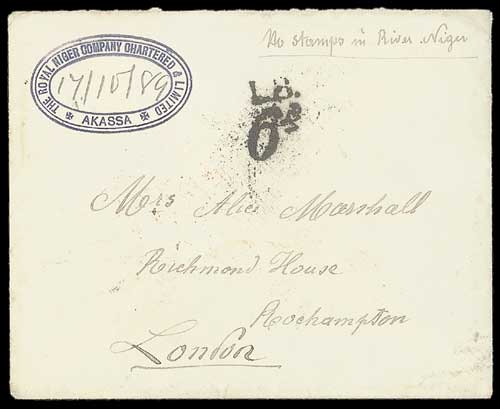 No stamps in River Niger
THE ROYAL NIGER COMPANY CHARTERED & LIMITED
17/10/89
AKASSA
L.S.
Mrs Alice Marshall
Richmond House
Roehampton
London